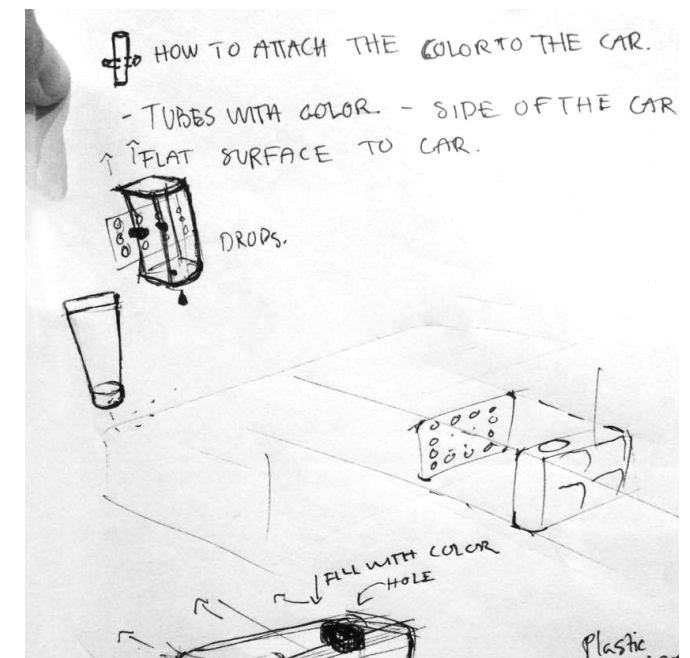 HOW TO ATTACH THE COLOR TO THE CAR.
- TUBES WITH COLOR. - SIDE OF THE CAR
FLAT SURFACE TO CAR.
DROPS.
FILL WITH COLOR
HOLE
Plastic